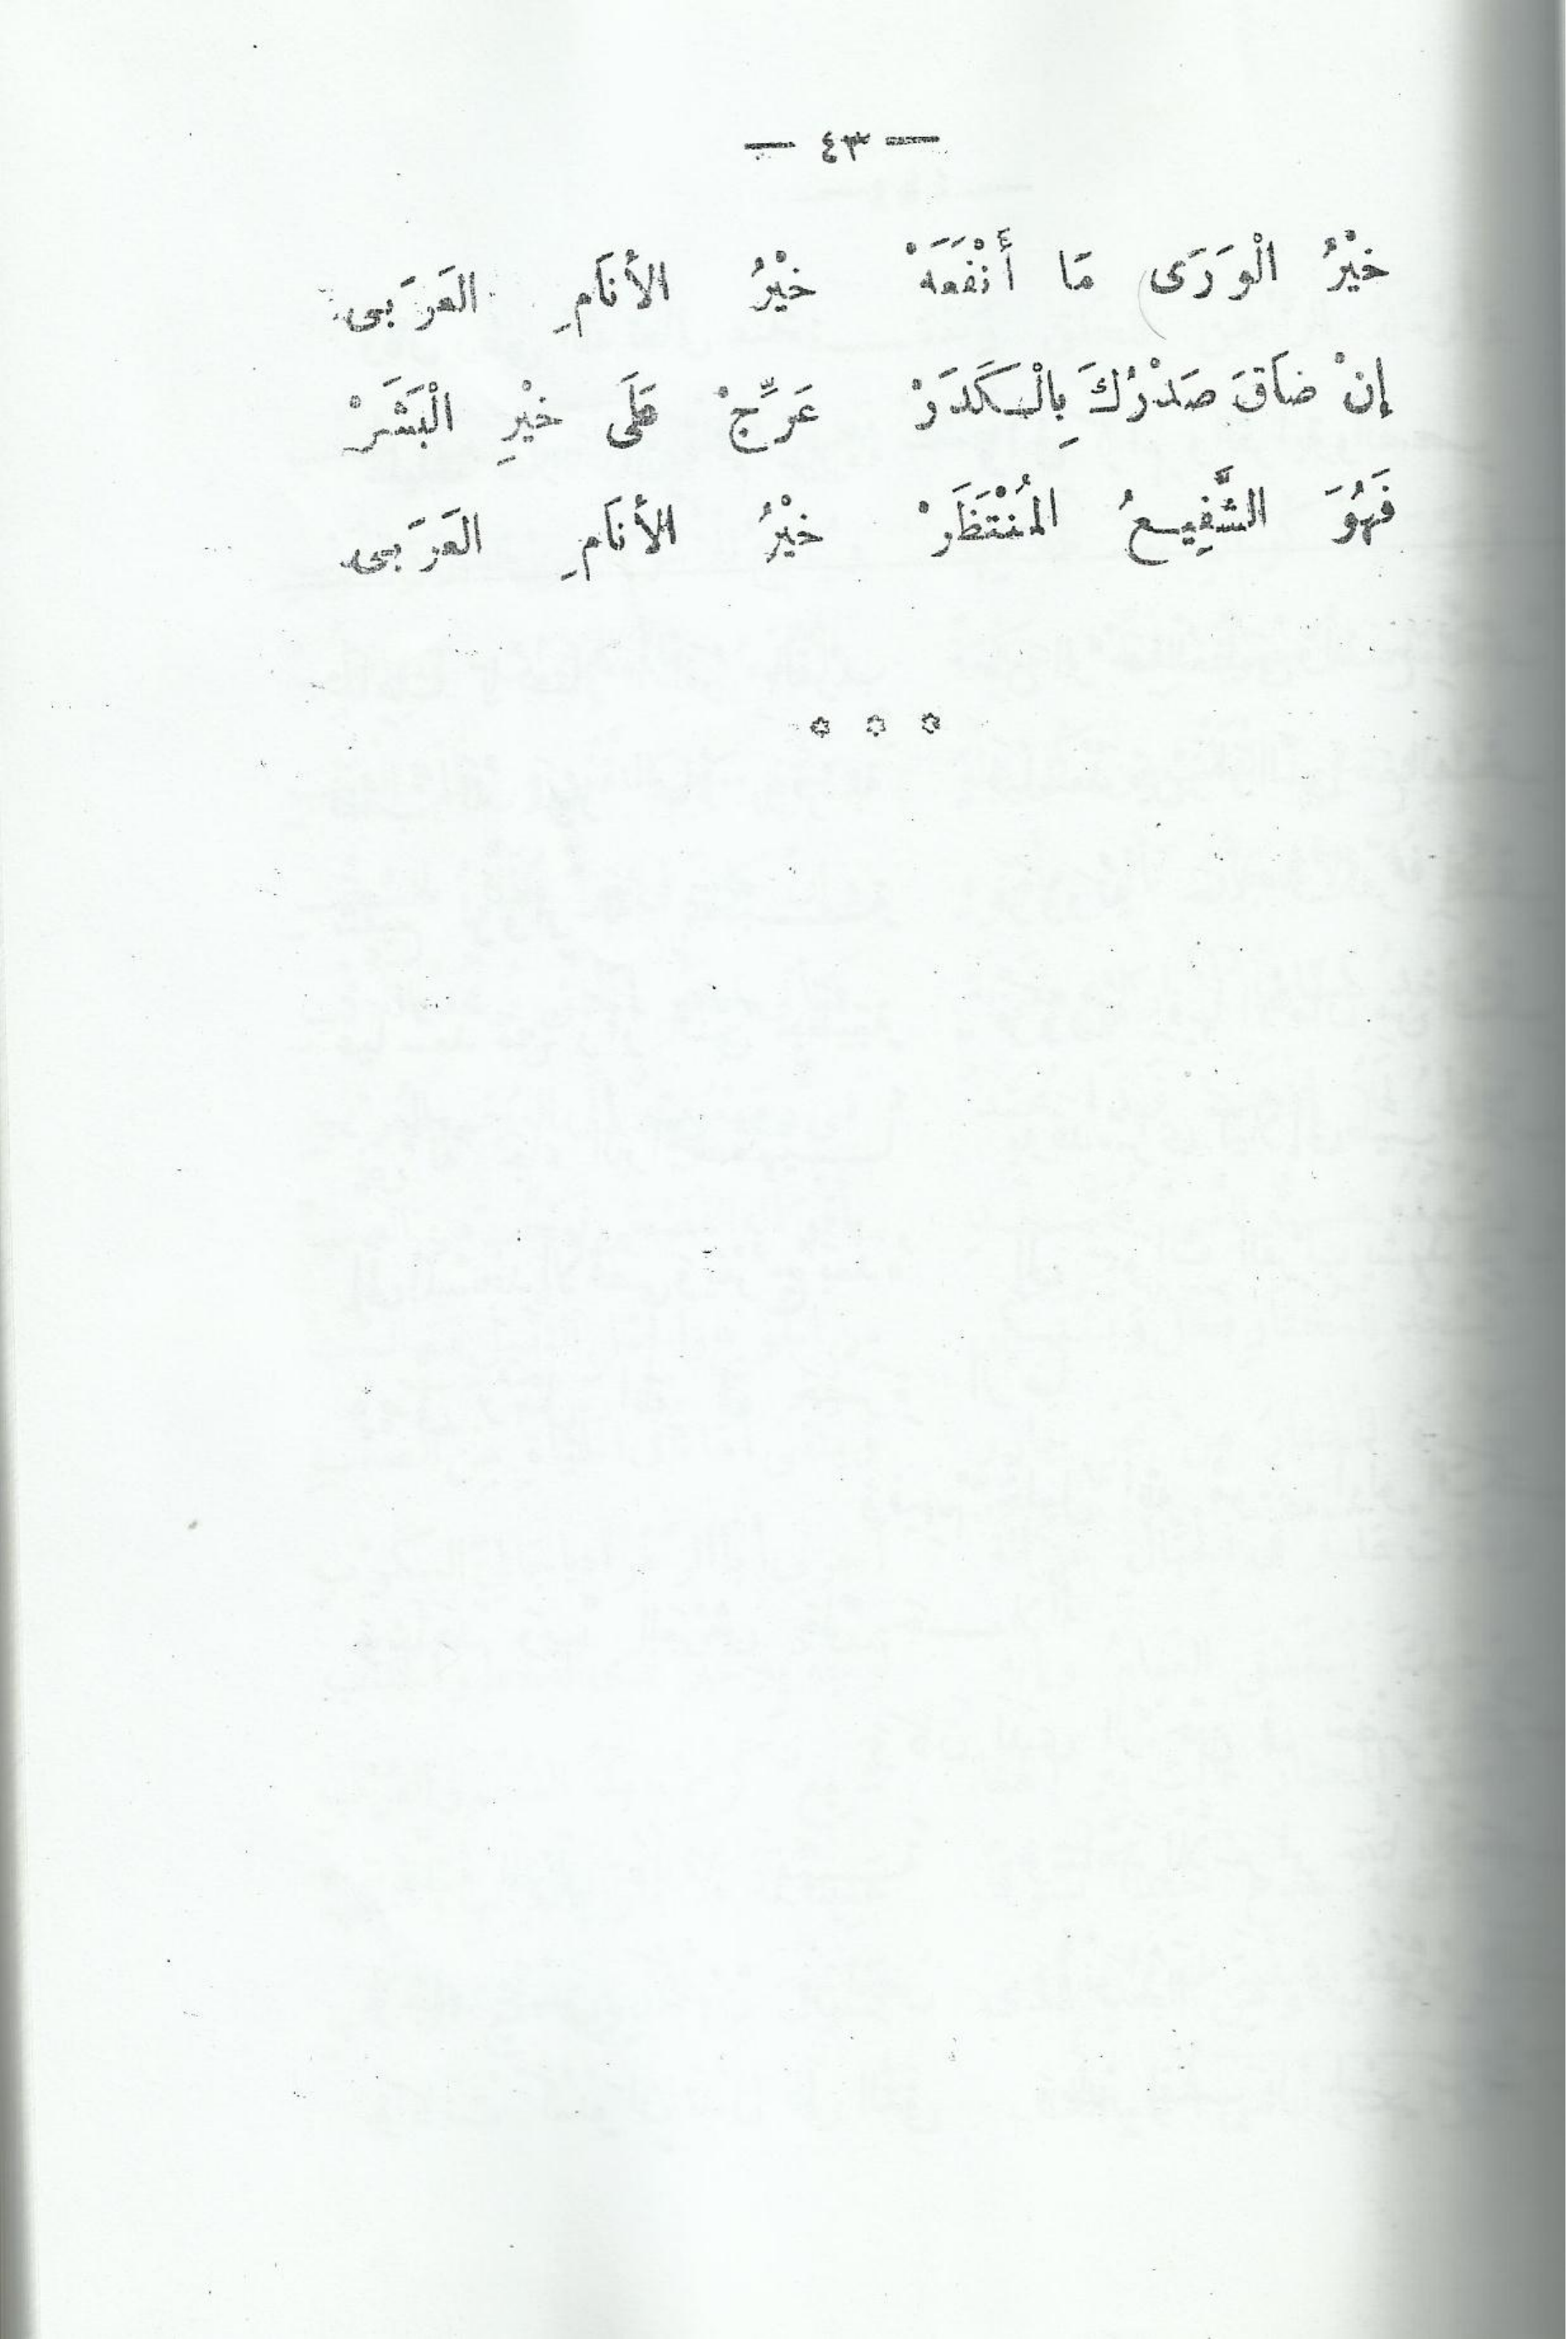 — ٤٣ —
خَيْرُ الْوَرَى مَا أَنْفَعَهْ خَيْرُ الأنَامِ العَرَبى
إنْ ضَاقَ صَدْرُكَ بِالْكَدَرْ عَرِّجْ عَلَى خَيْرِ الْبَشَرْ
فَهُوَ الشَّفِيعُ المُنْتَظَرْ خَيْرُ الأنَامِ العَرَبى
* * *